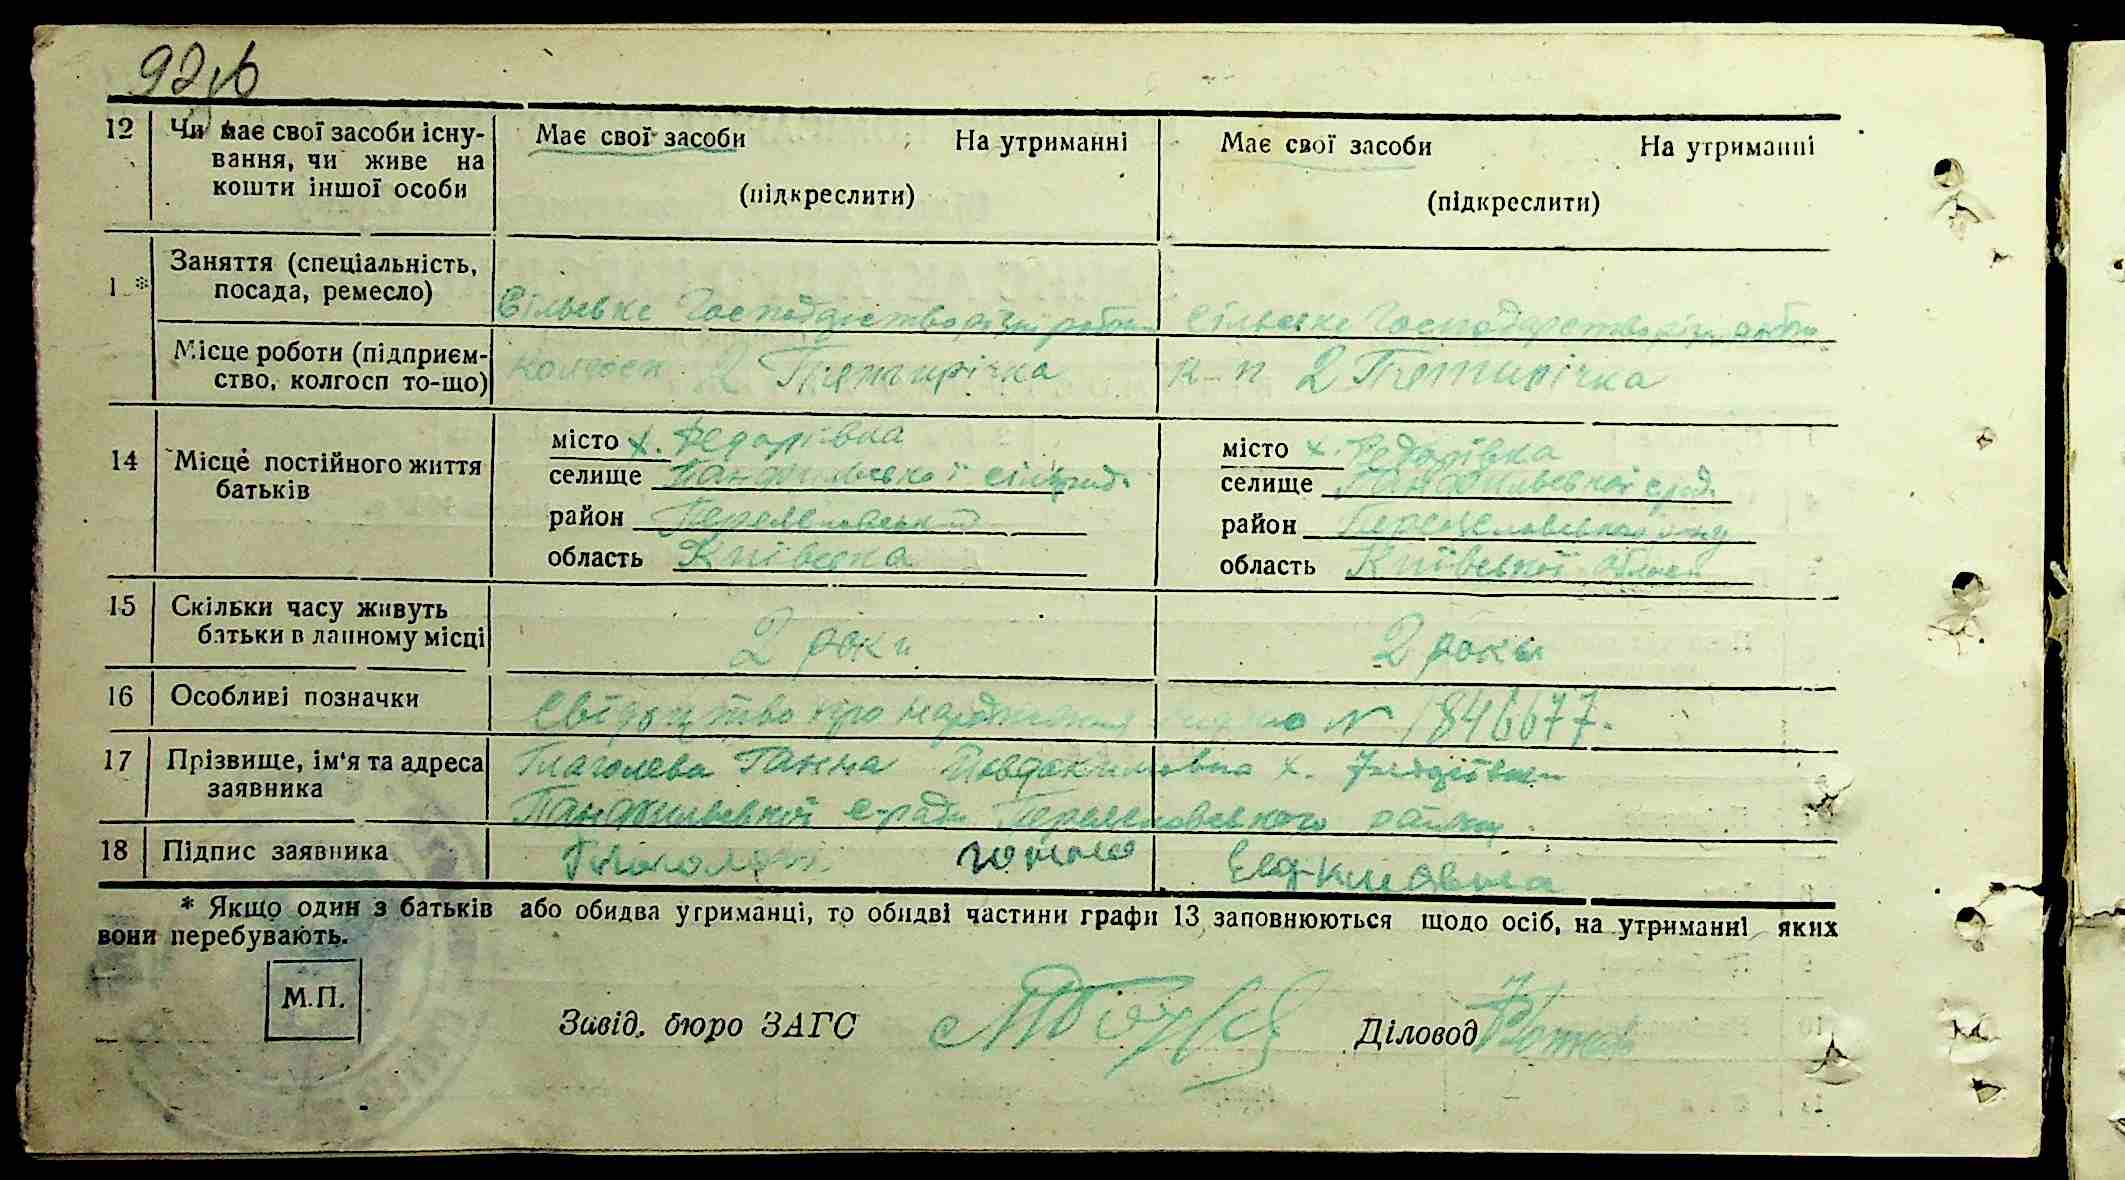 12 Чи має свої засоби існу- Має свої засоби На утриманні Має свої засоби На утриманні
вання, чи живе на
кошти іншої особи (підкреслити) (підкреслити)
Заняття (спеціальність,
1 * посада, ремесло) Сільське Господарство Сільське Господарство
Місце роботи (підприєм- колгосп 2 Пятирічка к-п 2 Пятирічка
ство, колгосп то-що)
місто х. Федорівка місто х. Федорівка
14 Місце постійного життя селище Панфильської селище Панфильської
батьків район район
область Київська область Київської області
15 Скільки часу живуть
батьки в данному місці 2 роки 2 роки
16 Особливі позначки Свідоцтво про народження видано № 1846677.
17 Прізвище, ім'я та адреса Глаголева Ганна Йовдокимовна х.
заявника Панфильської с-ради району
18 Підпис заявника
* Якщо один з батьків або обидва утриманці, то обидві частини графи 13 заповнюються щодо осіб, на утриманні яких
вони перебувають.
М.П.
Завід. бюро ЗАГС Діловод